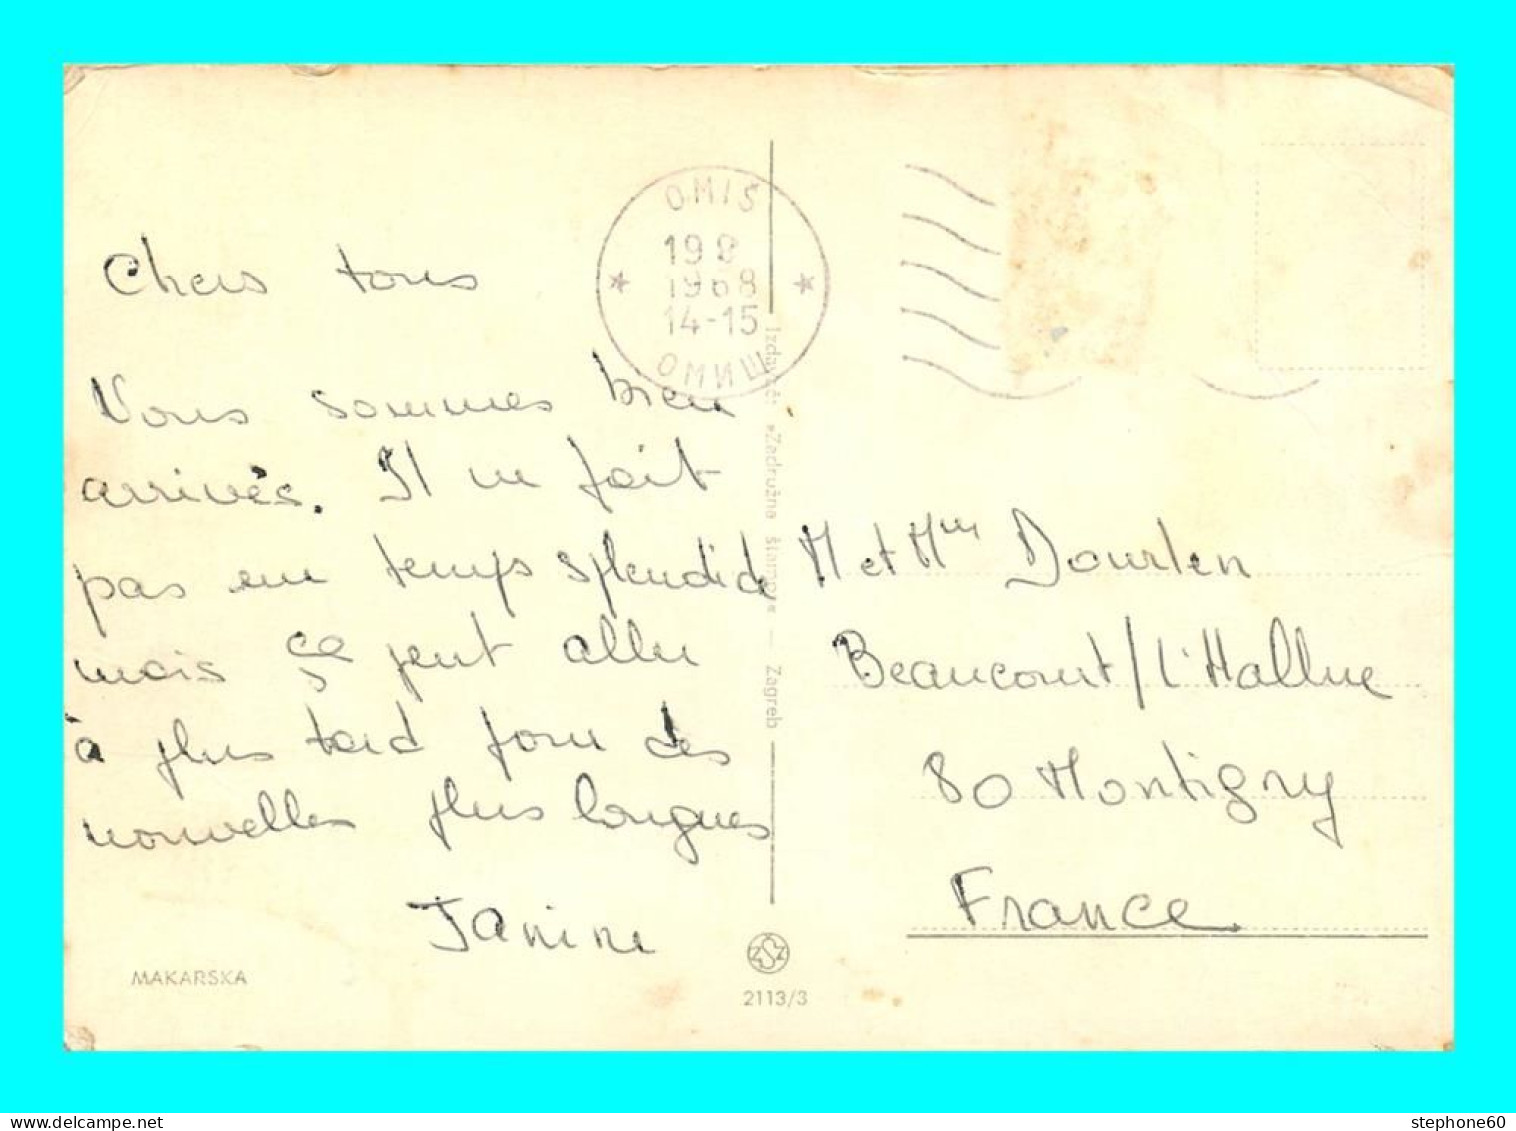 OMIŠ
19 8
1968
14-15
ОМИШ
Chers tous
Nous sommes bien
arrivés. Il ne fait
pas un temps splendide
mais ça peut aller
à plus tard pour des
nouvelles plus longues
Janine
MAKARSKA
Izdavač: »Zadružna štampa« — Zagreb
2113/3
M et Mme Dourlen
Beaucourt/l'Hallue
80 Montigny
France
stephone60